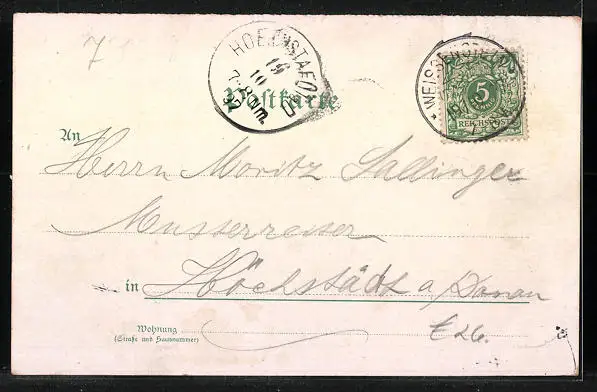 7
HOECHSTAEDT
19
10
7-8 Nm.
Postkarte
* WEISSEN
5
PFENNIG
REICHSPOST
An
Herrn Moritz Sallinger
in Höchstädt a/Donau
Wohnung
(Straße und Hausnummer)